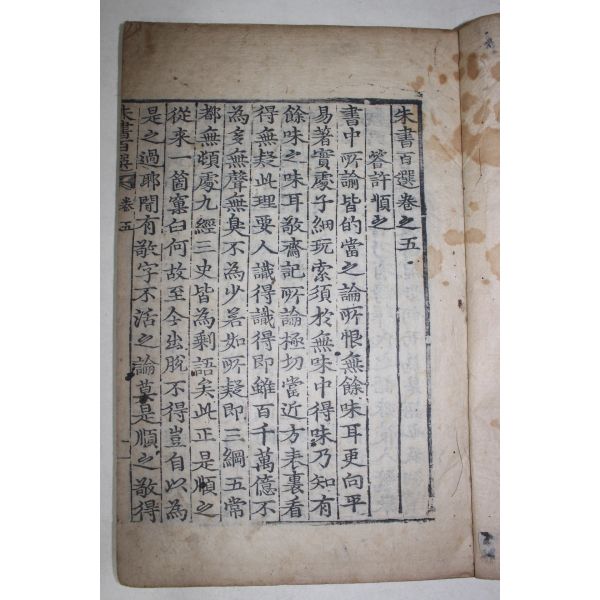 朱書百選卷之五
答許順之
書中所論皆的當之論所恨無餘味耳更向平
易著實處子細玩索須於無味中得味乃知有
餘味之味耳敬齋記所論極切當近方表裏看
得無疑此理要人識得識得即雖百千萬億不
為多無聲無臭不為少若如所疑即三綱五常
都無頓處九經三史皆為剩語矣此正是順之
從來一箇窠臼何故至今出脫不得豈自以為
是之過耶間有敬字不活之論莫是順之敬得
朱書百選 卷五 一